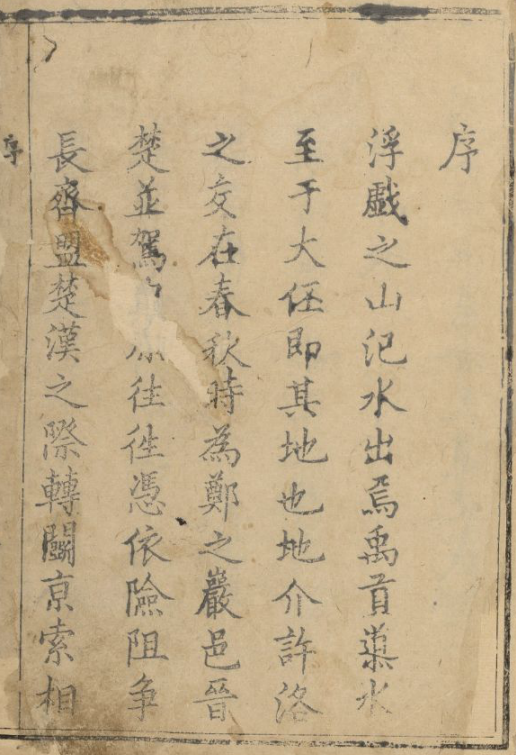 序
浮戲之山汜水出焉禹首導水
至于大伾即其地也地介許洛
之交在春秋時為鄭之巖邑晉
楚並駕往往憑依險阻爭
長齊盟楚漢之際轉鬭京索相
序